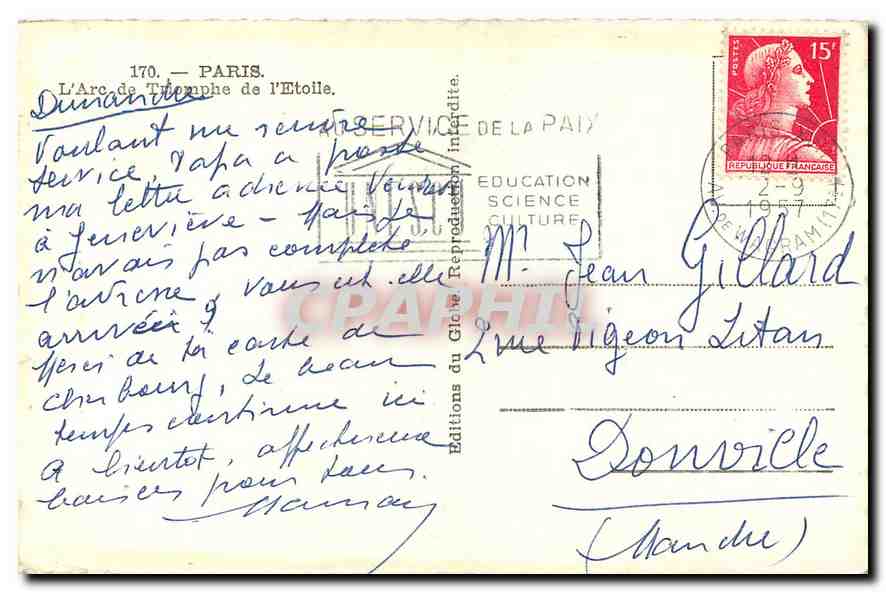 170. — PARIS.
L'Arc de Triomphe de l'Etoile.
Dimanche
Voulant me rendre
service, Papa a posté
ma lettre adressée Vendredi
à Geneviève - Mais je
n'avais pas complété
l'adresse, vous est-elle
arrivée ?
Merci de ta carte de
Cherbourg, le beau
temps continue ici
A bientôt, affectueux
baisers pour tous
Maman
Editions du Globe. Reproduction interdite.
AU SERVICE DE LA PAIX
UNESCO
EDUCATION
SCIENCE
CULTURE
POSTES
15F
REPUBLIQUE FRANÇAISE
2-9
1957
AV. DE WAGRAM (17e)
Mr Jean Gillard
2 rue Pigeon Litan
Donville
(Manche)
CPAPHIL